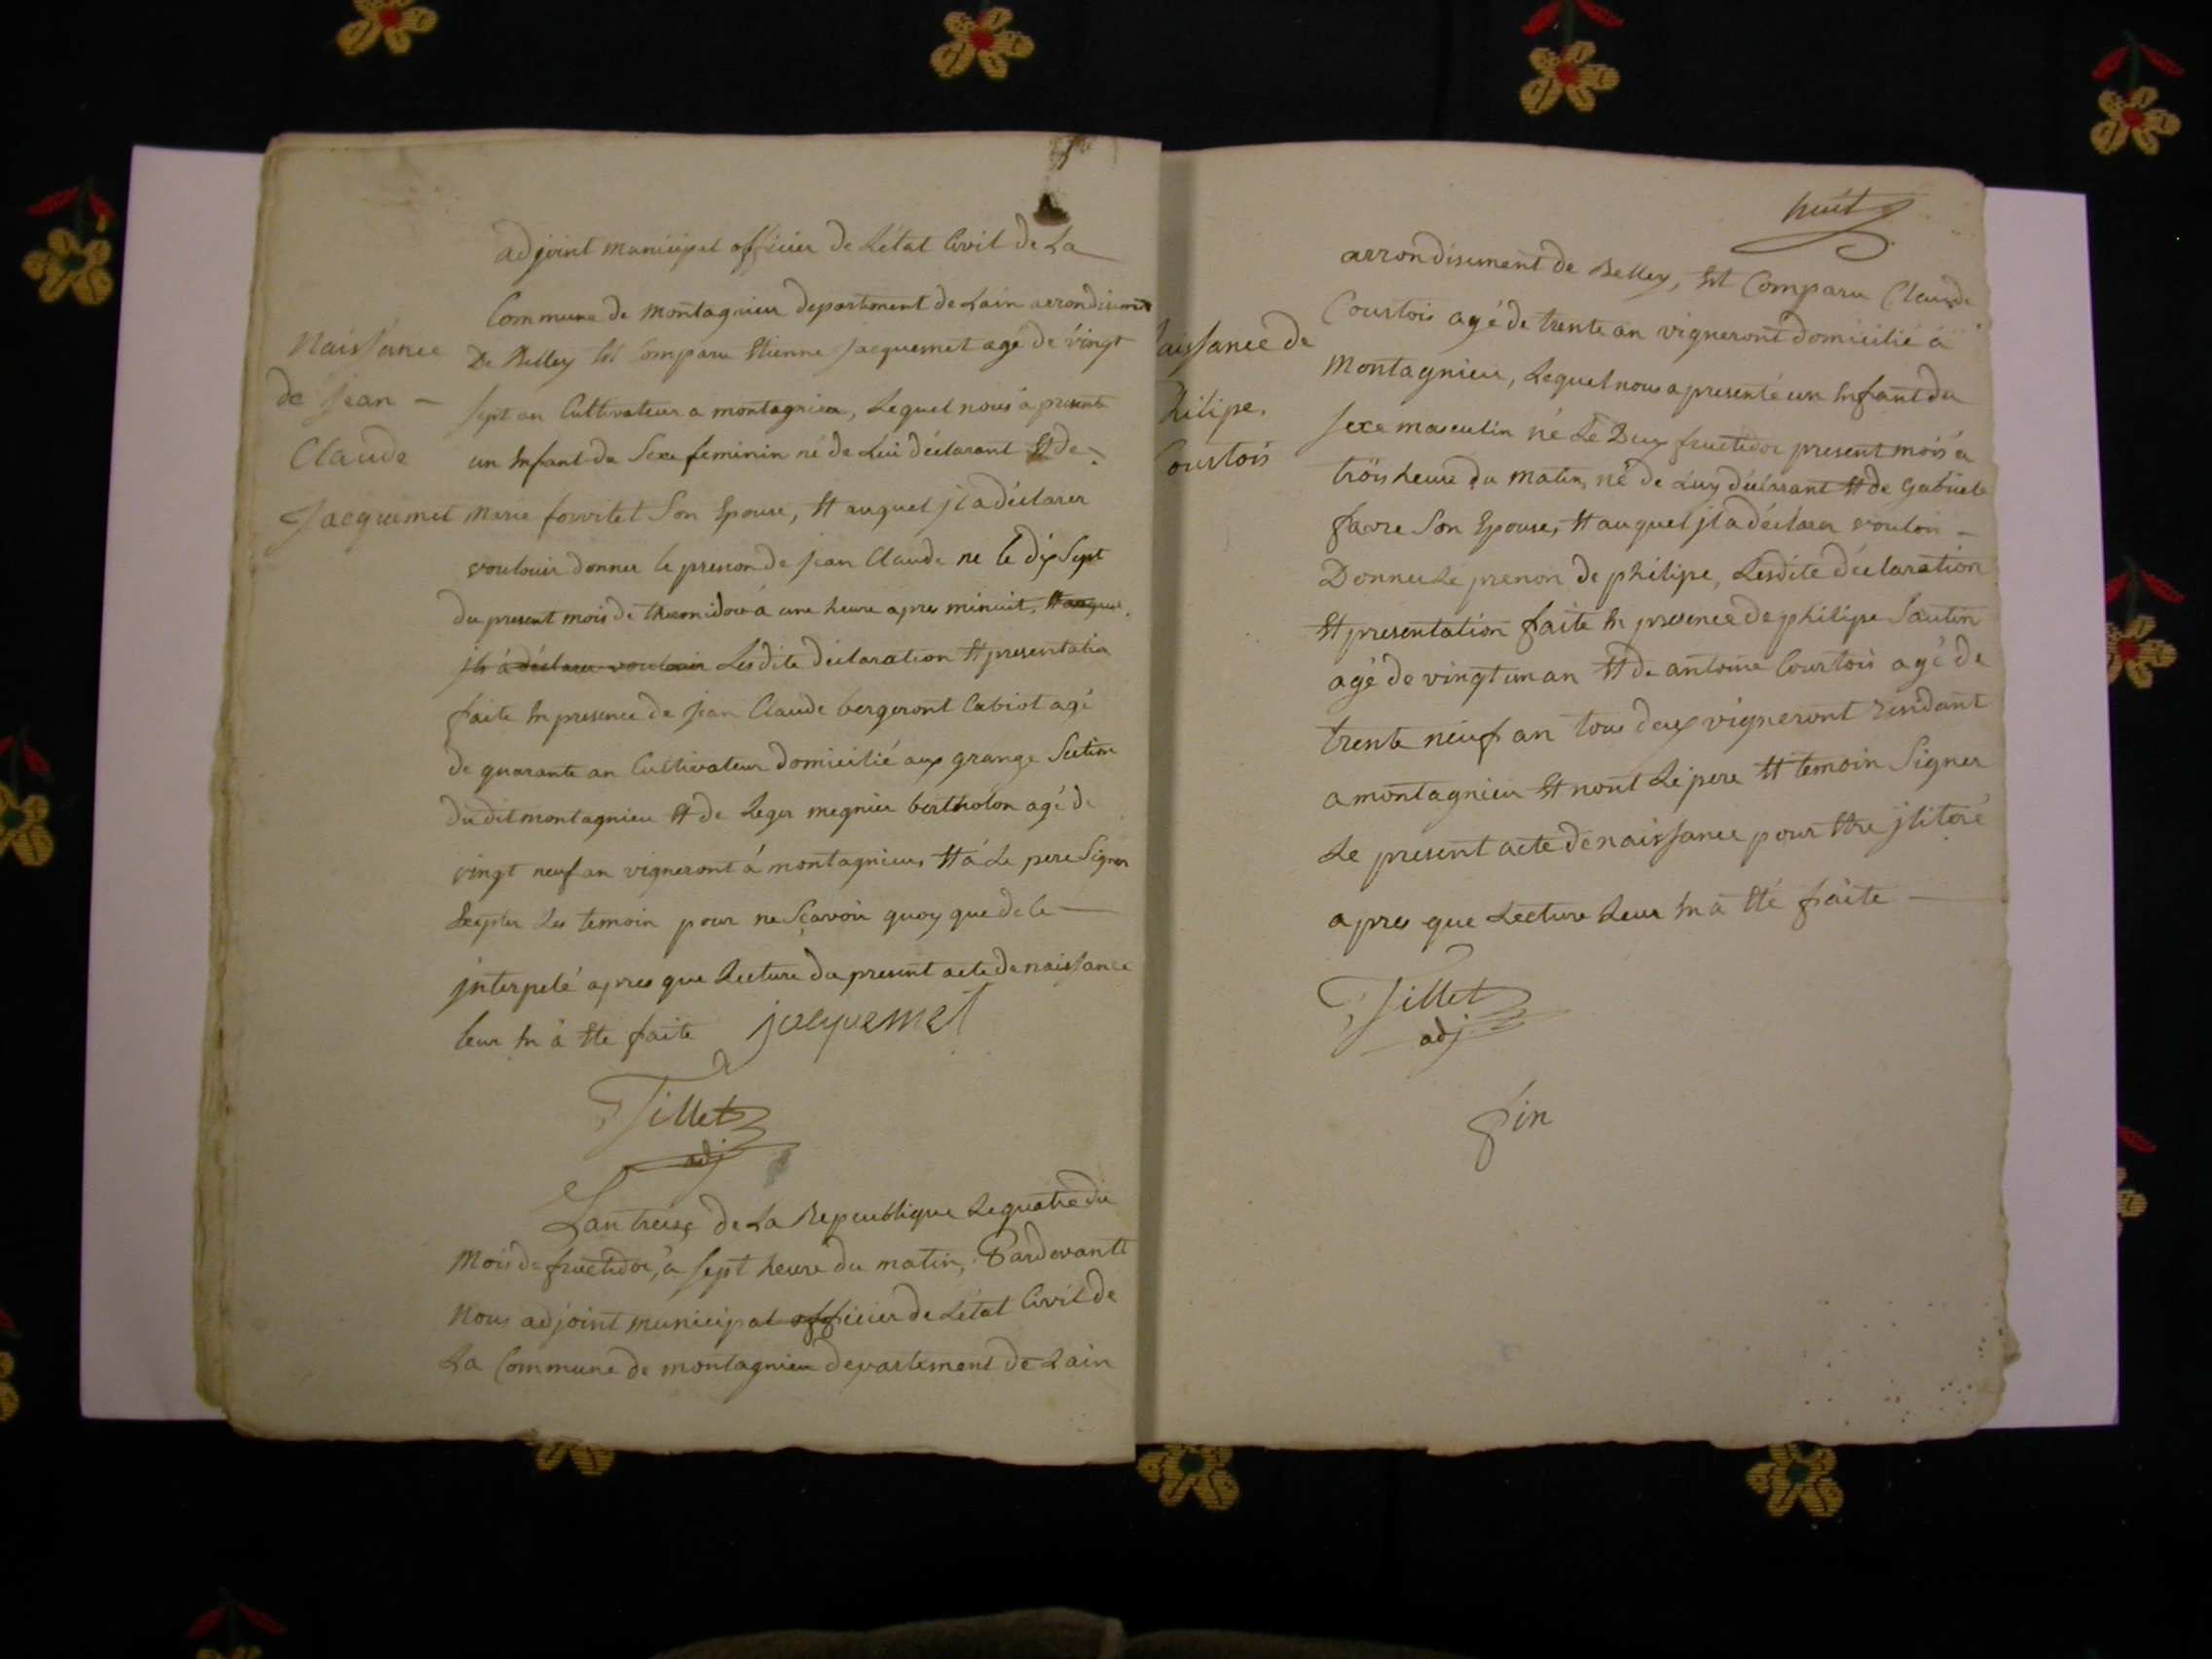 adjoint municipal officier de Létat Civil de La
Commune de montagnieu department de Lain arrondisment
De Belley Est Comparu Etienne Jacquemet agé de vingt
sept an Cultivateur a montagnieu, Lequel nous a presente
un Enfant du Sexe feminin né de Lui déclarant Et de
marie Son Epouse, Et auquel jl a déclarer
vouloir donner le prenon de jean Claude ne le dix Sept
du present mois de thermidor à une heure apres minuit, Et auquel
jls à déclarer vouloir Lesdite declaration Et presentation
faite En presence de jean Claude bergeront Cabiot agé
de quarante an Cultivateur domicilié aux grange Section
dudit montagnieu Et de Leger megnier bertholon agé de
vingt neuf an vigneront á montagnieu, Et á Le pere Signer
Excepter Les temoin pour ne Sçavoir quoy que de le
jnterpelé apres que Lecture du present acte de naissance
leur En à Ete faite jacquemet
Tillet
adj
Naissance
de jean
Claude
Jacquemet
Lan treise de La Republique Le quatre du
Mois de fructidor, à sept heure du matin, Pardevant
Nous adjoint municipal officier de Létat Civil de
La Commune de montagnieu departement de Lain
huit
arrondisement de Belley, Est Comparu Claude
Courtois agé de trente an vigneront domicilié à
Montagnieu, Lequel nous a presenté un Enfant du
sexe masculin né Le Deux fructidor present mois à
trois heure du matin, né de Luy déclarant Et de Gabriele
favre Son Epouse, Et auquel jl a déclarer vouloir
Donner Le prenon de philipe, Lesdite déclaration
Et presentation faite En presence de philipe Sautin
agé de vingt un an Et de antoine Courtois agé de
trente neuf an tous deux vigneront residant
a montagnieu Et nont Le pere Et temoin Signer
Le present acte de naissance pour Etre jliteré
apres que Lecture Leur En à Eté faite
Tillet
adj
fin
aissance de
hilipe
ourtois